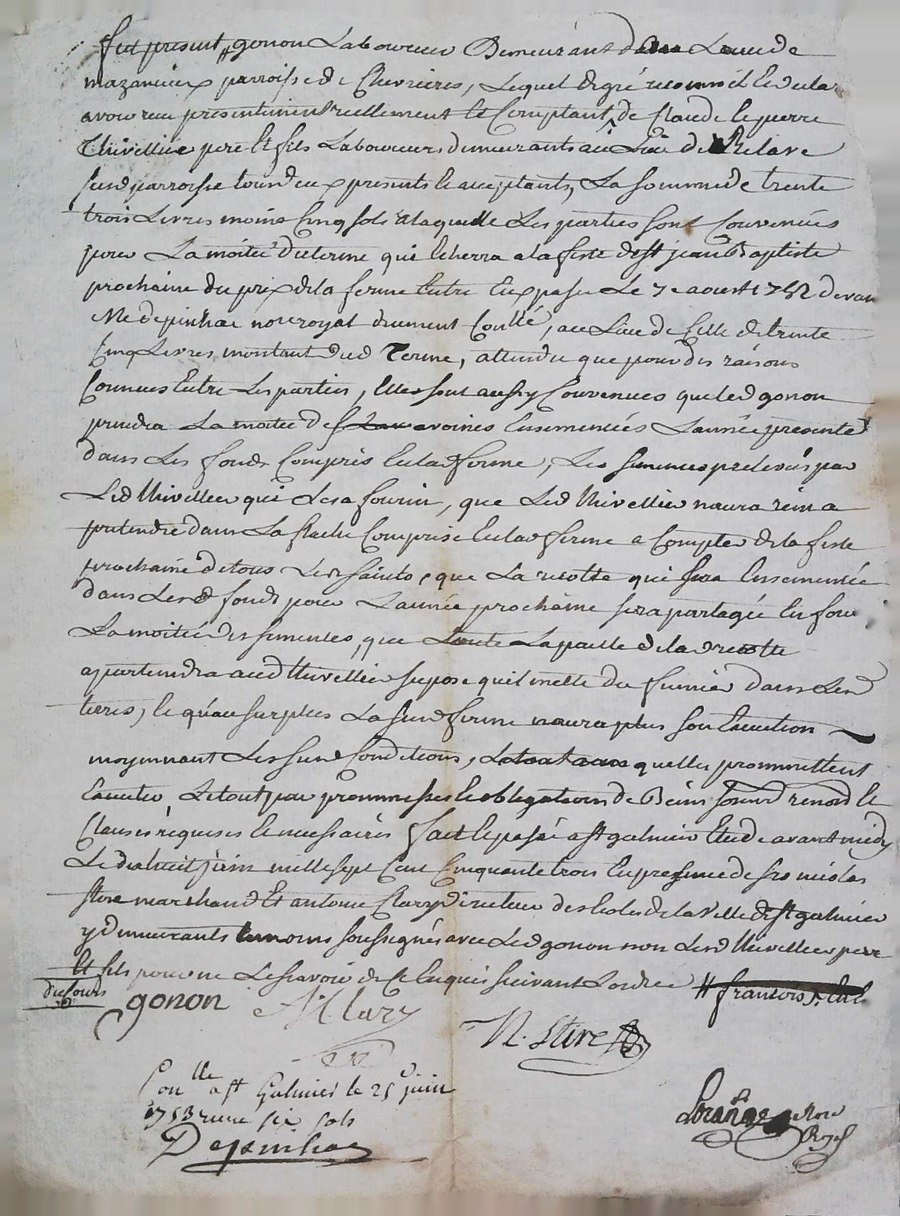 fut present # gonon Laboureur Demeurant Lieu de
mazanieux parroisse de Chevrieres, Lequel de gré reconnoit Et
avoir reçu présentement reellement Et Comptant, de Claude Et pierre
thivellier pere Et fils Laboureurs demeurants au Lieu de
parroisse tous deux presents Et aceptants, La somme de trente
trois Livres moins Cinq sols a laquelle Les parties sont Convenues
pour La moitié du terme qui Echerra a la feste de st jean Baptiste
prochaine du prix de la ferme Entre Eux passée Le 7e aoust 1752 devan
Me depinhac nore royal duement Conllé, au Lieu de Celle de trente
Cinq Livres montant dud Terme, attendu que pour des raisons
Connues Entre Les parties, Elles sont aussy Convenues que led gonon
prendra La moitié des avoines Ensemencées L'année presente
dans Les fonds Compris En lad ferme, Les semences prelevées par
Led thivellier qui Les a fourni, que Led thivellier n'aura rien a
pretendre dans La Comprise En lad ferme a Compter de la feste
prochaine de tous Les saints, que La recolte qui sera Ensemencée
dans Lesd fonds pour L'année prochaine sera partagée En
La moitié des semences, que toute La paille de lad recolte
apartiendra aud thivellier suposé qu'il mette du fumier dans Lesd
terres, Et qu'au surplus La susd ferme n'aura plus son Execution
moyennant Les susd Conditions, quelles promettent
Executer Le tout par promesses Et obligations de Biens soumd renond Et
Clauses requises Et necessaires fait Et passé a st galmier Etude avant midy
Le dix huit juin mille sept Cent Cinquante trois En presence de sr nicolas
Stire marchand Et antoine Clary directeur des Ecoles de la ville de st galmier
y demeurants temoins soussignés avec Led gonon non Lesd thivellier pere
Et fils pour ne Le sçavoir de Ce Enquis suivant L'ordce # francois
gonon
A: Clary
N. Stire
Conlle a st Galmier le 25 juin
1753 reçu six sols
Depinhac
nore
Royal